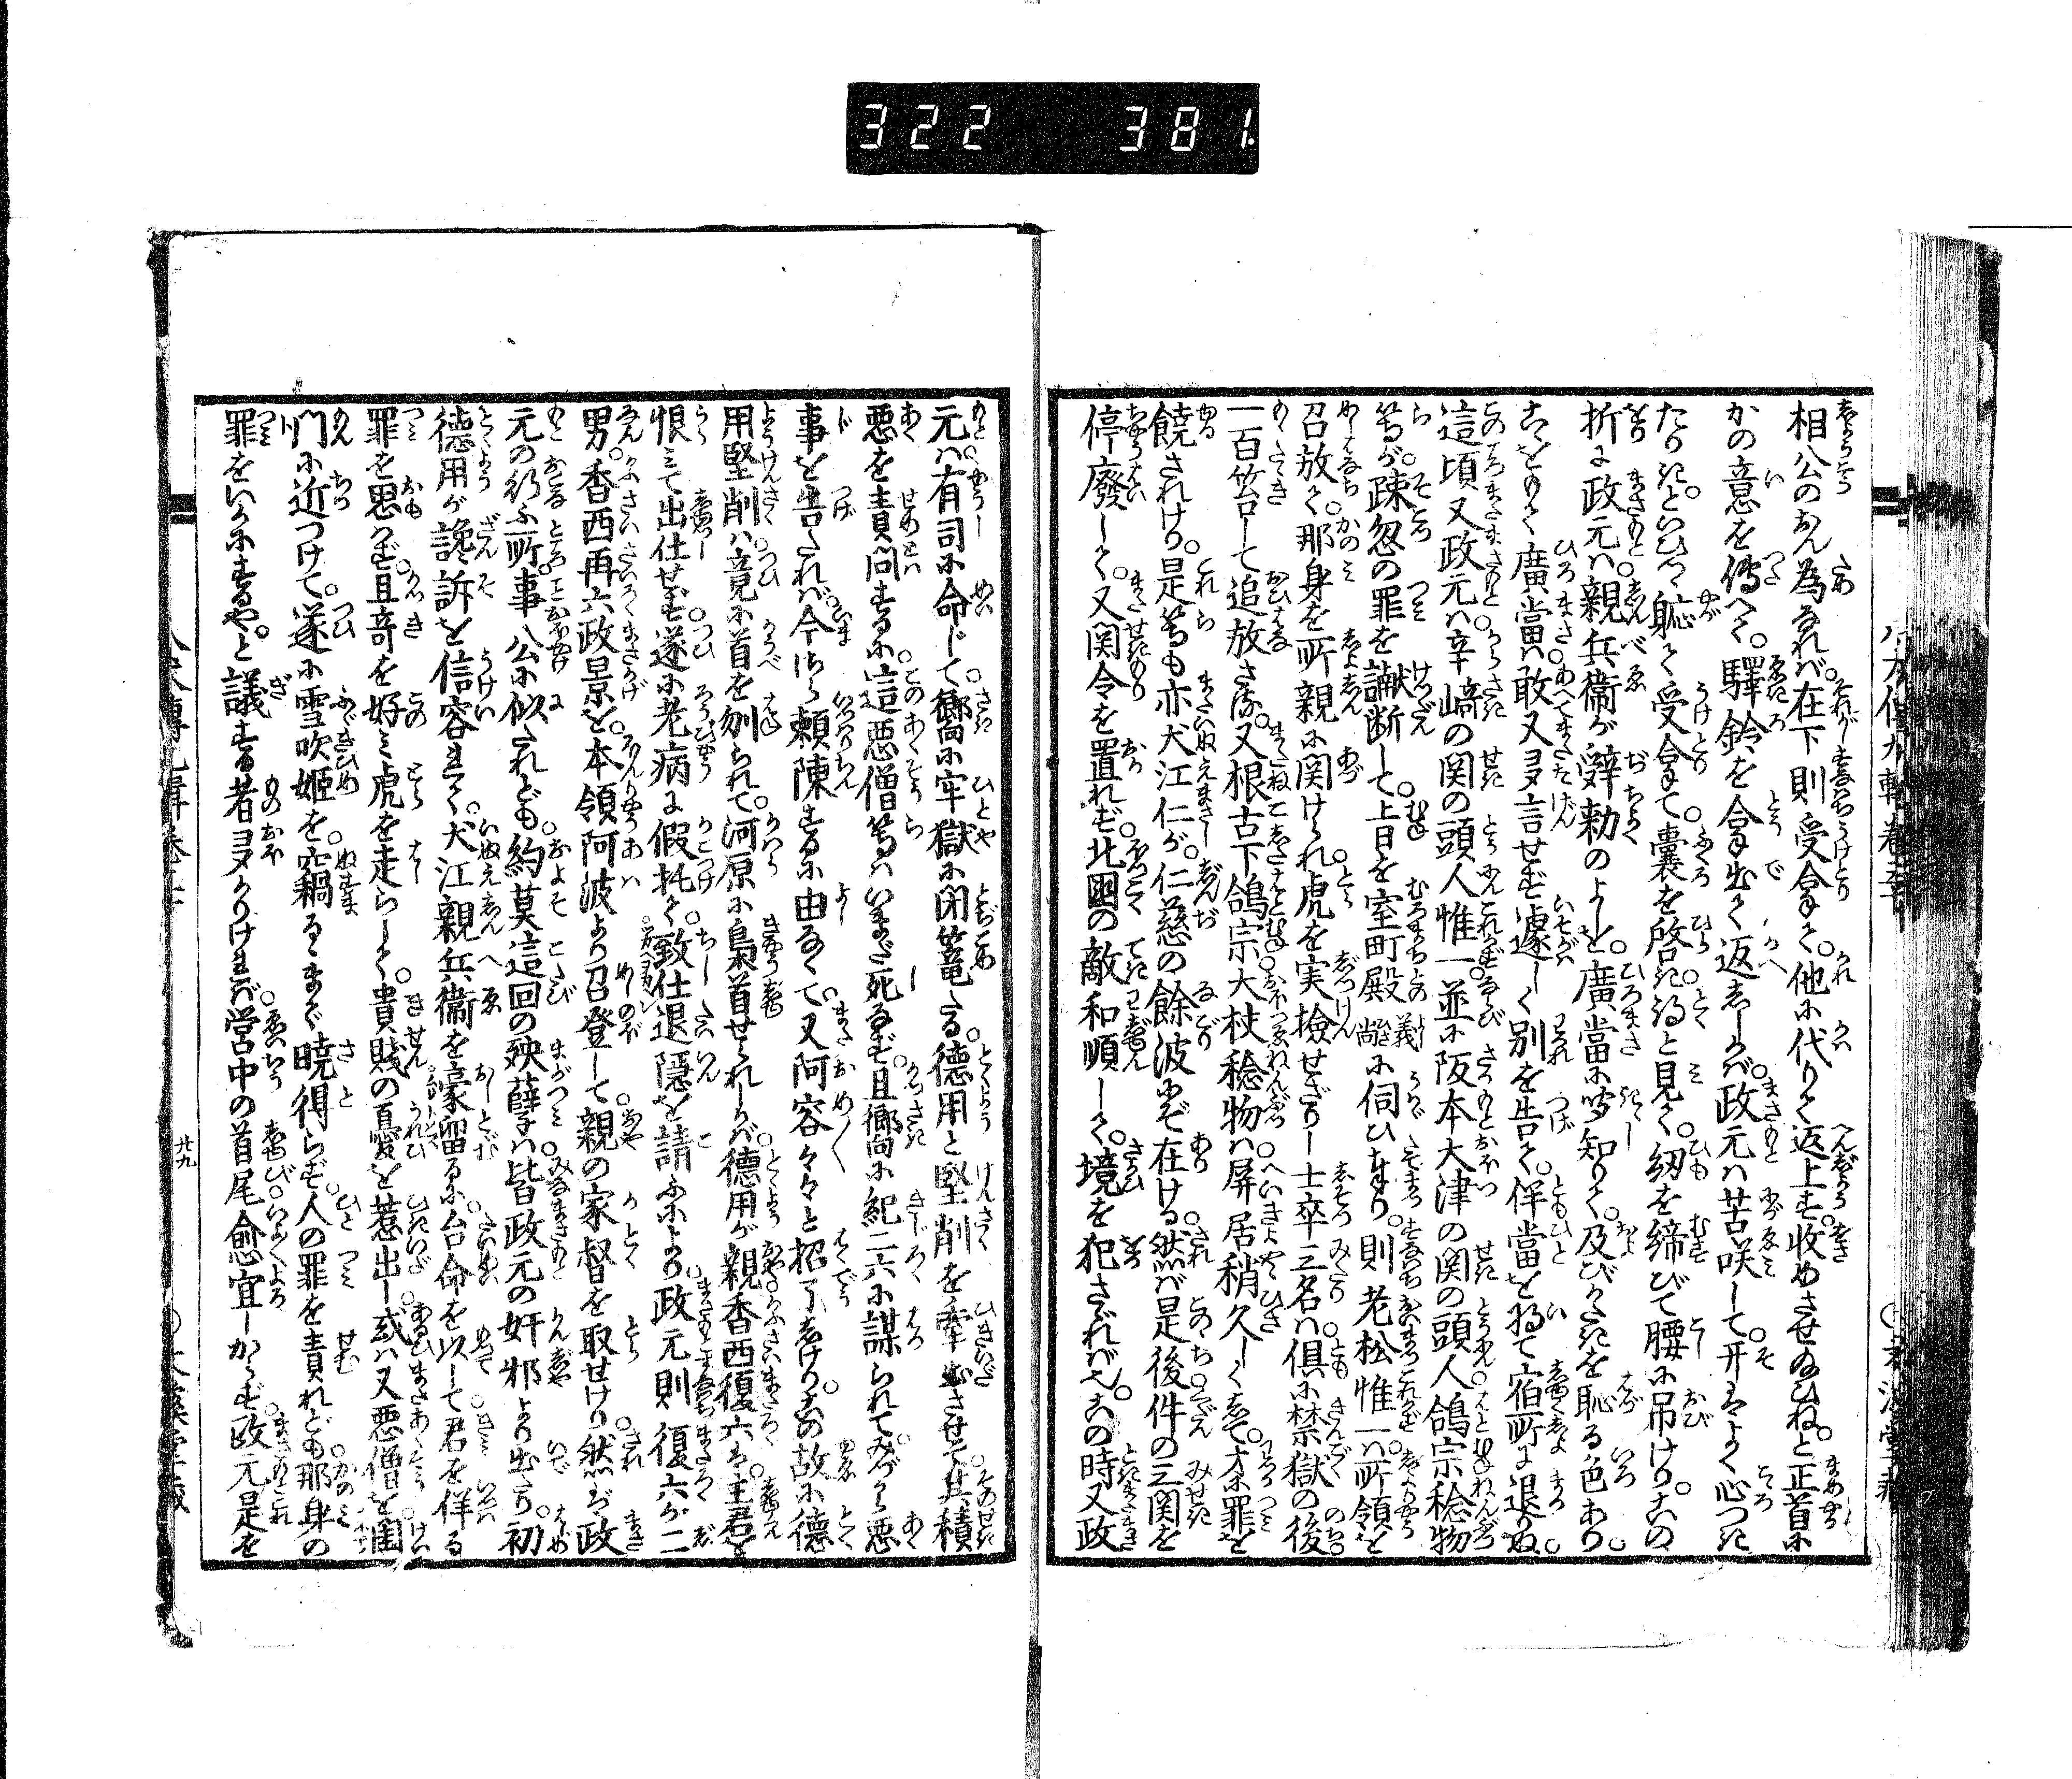 322 381
相公のおん為なれば在下則受拿て。他に代りて返上せむ。收めさせ給ひね。と正首に
かの意を傳へて。驛鈴を拿出て返ししかば。政元は苦咲して。开はよく心つき
たりき。といひつゝ躬て受拿て。囊を啓きつゝと見て。紐を締びて腰に吊けり。この
折に政元は。親兵衞が辤敕のよしを。廣當に聞知りて。及びかたきを恥る色あり。
ことをもて廣當は。敢又多言せず。遽しく別を告て。伴當を将て宿所に退りぬ。
這頃又政元は。辛﨑の関の頭人惟一。並に阪本大津の関の頭人鴿宗稔物
等が。疎忽の罪を讞断して。上日を室町殿義尚に伺ひまつり。則老松惟一は所領を
召放て。那身を所親に関けられ。虎を実撿せざりし士卒三名は。倶に禁獄の後
一百笞して追放さる。又根古下鴿宗大杖稔物は。屏居稍久しくして。本罪を
饒されけり。是等も亦犬江仁が。仁慈の餘波にぞ在ける。然ば是後件の三関を
停廢して。又関令を置れず。北國の敵和順して。境を犯さゞればや。この時又政
元は。有司に命じて。嚮に牢獄に閉篭たる。德用と堅削を牽出させて。其積
悪を責問するに。這悪僧等はいまだ死なず。且嚮に紀二六に謀られて。みづから悪
事を告たれば。今はた頼陳するに由なくて。又阿容々々と招了しけり。この故に德
用堅削は。竟に首を刎られて。河原に梟首せられしかば。德用が親香西復六は。主君を
恨みて出仕せず。遂に老病に假托て。致仕退隱を請ふにより。政元則復六が二
男。香西再六政景を。本領阿波より召登して。親の家督を取せけり。然ば政
元の行ふ所。事公に似たれども。約莫這回の殃孽は。皆政元の奸邪より出たり。初
德用が讒訴を信容れて。犬江親兵衞を豪留るに。台命を以して。君を佯る
罪を思はず。且奇を好み虎を走らして。貴賤の憂を惹出し。或は又悪僧を
門に近つけて。遂に雪吹姬を竊るゝまで暁得らず。人の罪を責れども。那身の
罪をいかにするや。と議する者多かりければ。営中の首尾愈宜しからず。政元是を
廿九